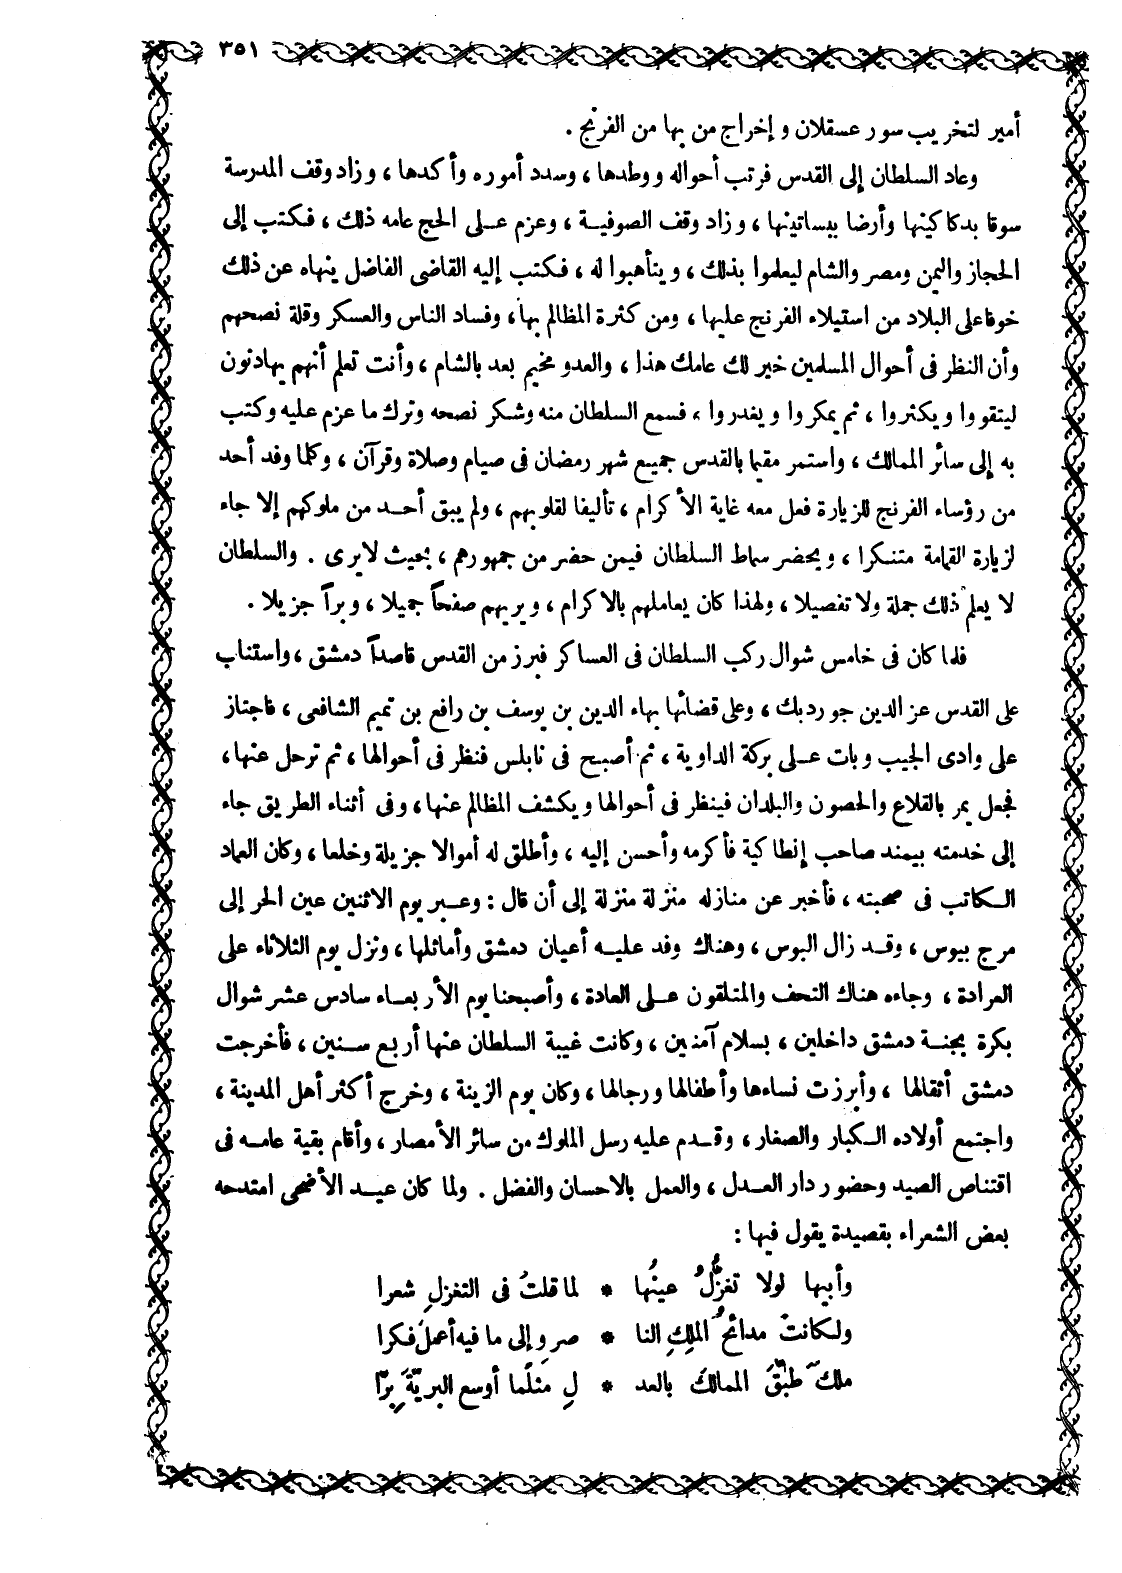 ٣٥١
أمير لتخريب سور عسقلان وإخراج من بها من الفرنج .
وعاد السلطان إلى القدس فرتب أحواله ووطدها ، وسدد أموره وأكدها ، وزاد وقف المدرسة
سوقا بدكاكينها وأرضا ببساتينها ، وزاد وقف الصوفية ، وعزم على الحج عامه ذلك ، فكتب إلى
الحجاز واليمن ومصر والشام ليعلموا بذلك ، ويتأهبوا له ، فكتب إليه القاضى الفاضل ينهاه عن ذلك
خوفا على البلاد من استيلاء الفرنج عليها ، ومن كثرة المظالم بها ، وفساد الناس والعسكر وقلة نصحهم
وأن النظر فى أحوال المسلمين خير لك عامك هذا ، والعدو مخيم بعد بالشام ، وأنت تعلم أنهم يهادنون
ليتقووا ويكثروا ، ثم يمكروا ويغدروا ، فسمع السلطان منه وشكر نصحه وترك ما عزم عليه وكتب
به إلى سائر الممالك ، واستمر مقيما بالقدس جميع شهر رمضان فى صيام وصلاة وقرآن ، وكلما وفد أحد
من رؤساء الفرنج للزيارة فعل معه غاية الأكرام ، تأليفا لقلوبهم ، ولم يبق أحد من ملوكهم إلا جاء
لزيارة القمامة متنكرا ، ويحضر سماط السلطان فيمن حضر من جمهورهم ، بحيث لا يرى . والسلطان
لا يعلم ذلك جملة ولا تفصيلا ، ولهذا كان يعاملهم بالاكرام ، ويريهم صفحاً جميلا ، وبراً جزيلا .
فلما كان فى خامس شوال ركب السلطان فى العساكر فبرز من القدس قاصداً دمشق ، واستناب
على القدس عز الدين جورديك ، وعلى قضائها بهاء الدين بن يوسف بن رافع بن تميم الشافعى ، فاجتاز
على وادى الجيب وبات على بركة الداوية ، ثم أصبح فى نابلس فنظر فى أحوالها ، ثم ترحل عنها ،
فجعل يمر بالقلاع والحصون والبلدان فينظر فى أحوالها ويكشف المظالم عنها ، وفى أثناء الطريق جاء
إلى خدمته بيمند صاحب إنطاكية فأكرمه وأحسن إليه ، وأطلق له أموالا جزيلة وخلعا ، وكان العماد
الكاتب فى صحبته ، فأخبر عن منازله منزلة منزلة إلى أن قال : وعبر يوم الاثنين عين الحر إلى
مرج بيوس ، وقد زال البوس ، وهناك وفد عليه أعيان دمشق وأماثلها ، ونزل يوم الثلاثاء على
العرادة ، وجاءه هناك التحف والمتلقون على العادة ، وأصبحنا يوم الأربعاء سادس عشر شوال
بكرة بجنة دمشق داخلين ، بسلام آمنين ، وكانت غيبة السلطان عنها أربع سنين ، فأخرجت
دمشق أثقالها ، وأبرزت نساءها وأطفالها ورجالها ، وكان يوم الزينة ، وخرج أكثر أهل المدينة ،
واجتمع أولاده الكبار والصغار ، وقدم عليه رسل الملوك من سائر الأمصار ، وأقام بقية عامه فى
اقتناص الصيد وحضور دار العدل ، والعمل بالاحسان والفضل . ولما كان عيد الأضحى امتدحه
بعض الشعراء بقصيدة يقول فيها :
وأبيها لولا تغزُّلُ عينُها * لما قلتُ فى التغزلِ شعرا
ولكانتْ مدائحُ الملكِ النا * صرِ وإلى ما فيه أعملُ فكرا
ملك طبَّقَ الممالكَ بالعد * لِ مثلَما أوسع البريّةَ بِرّا